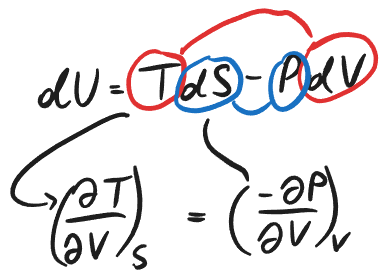 dU = TdS - PdV
(∂T/∂V)_S = (-∂P/∂V)_V